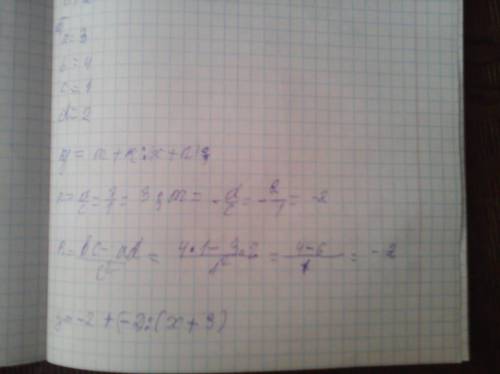 a=3
b=4
c=1
d=2
y=m+k:(x+n);
n=a/c=3/1=3; m=-d/c=-2/1=-2
k=bc-ad/c²=4·1-3·2/1²=4-6/1=-2
y=-2+(-2):(x+3)